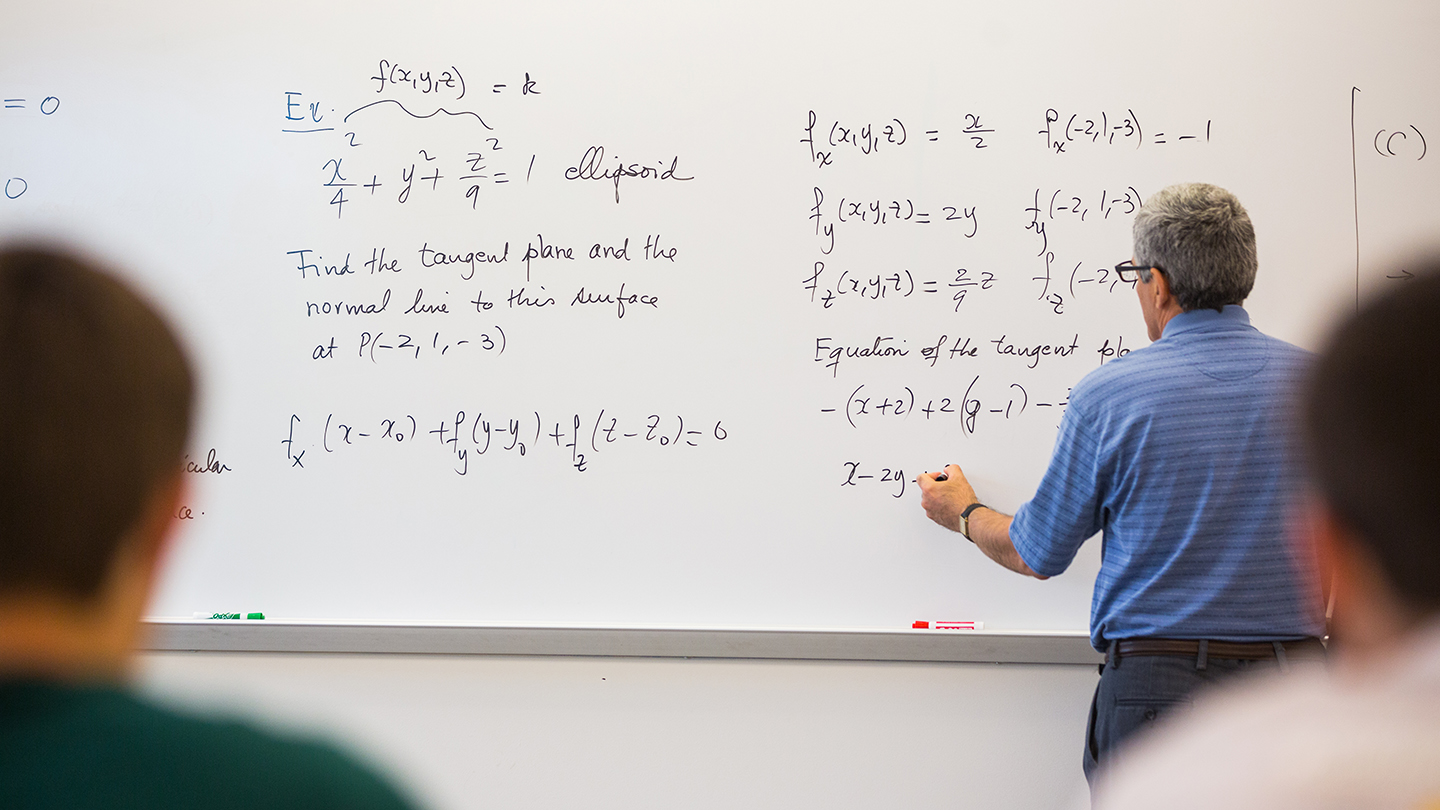 = 0
0
Ex.
f(x,y,z) = k
x²/4 + y² + z²/9 = 1 ellipsoid
Find the tangent plane and the
normal line to this surface
at P(-2, 1, -3)
f_x (x-x₀) + f_y (y-y₀) + f_z (z-z₀) = 0
f_x(x,y,z) = x/2 f_x(-2,1,-3) = -1
f_y(x,y,z) = 2y f_y(-2,1,-3)
f_z(x,y,z) = 2/9 z f_z(-2,
Equation of the tangent
-(x+2) + 2(y-1) -
x - 2y
(C)
→